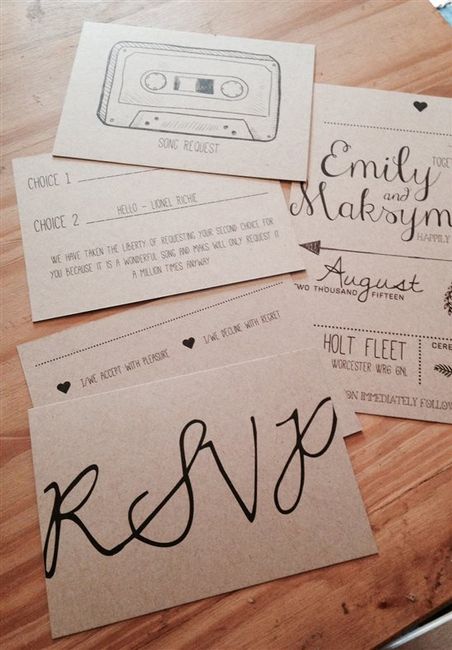 SONG REQUEST
CHOICE 1
CHOICE 2 HELLO - LIONEL RICHIE
WE HAVE TAKEN THE LIBERTY OF REQUESTING YOUR SECOND CHOICE FOR
YOU BECAUSE IT IS A WONDERFUL SONG AND MAKS WILL ONLY REQUEST IT
A MILLION TIMES ANYWAY
I/WE ACCEPT WITH PLEASURE
I/WE DECLINE WITH REGRET
RSVP
Emily
and
Maksym
HAPPILY
August
TWO THOUSAND FIFTEEN
HOLT FLEET
WORCESTER WR6 6NL
IMMEDIATELY